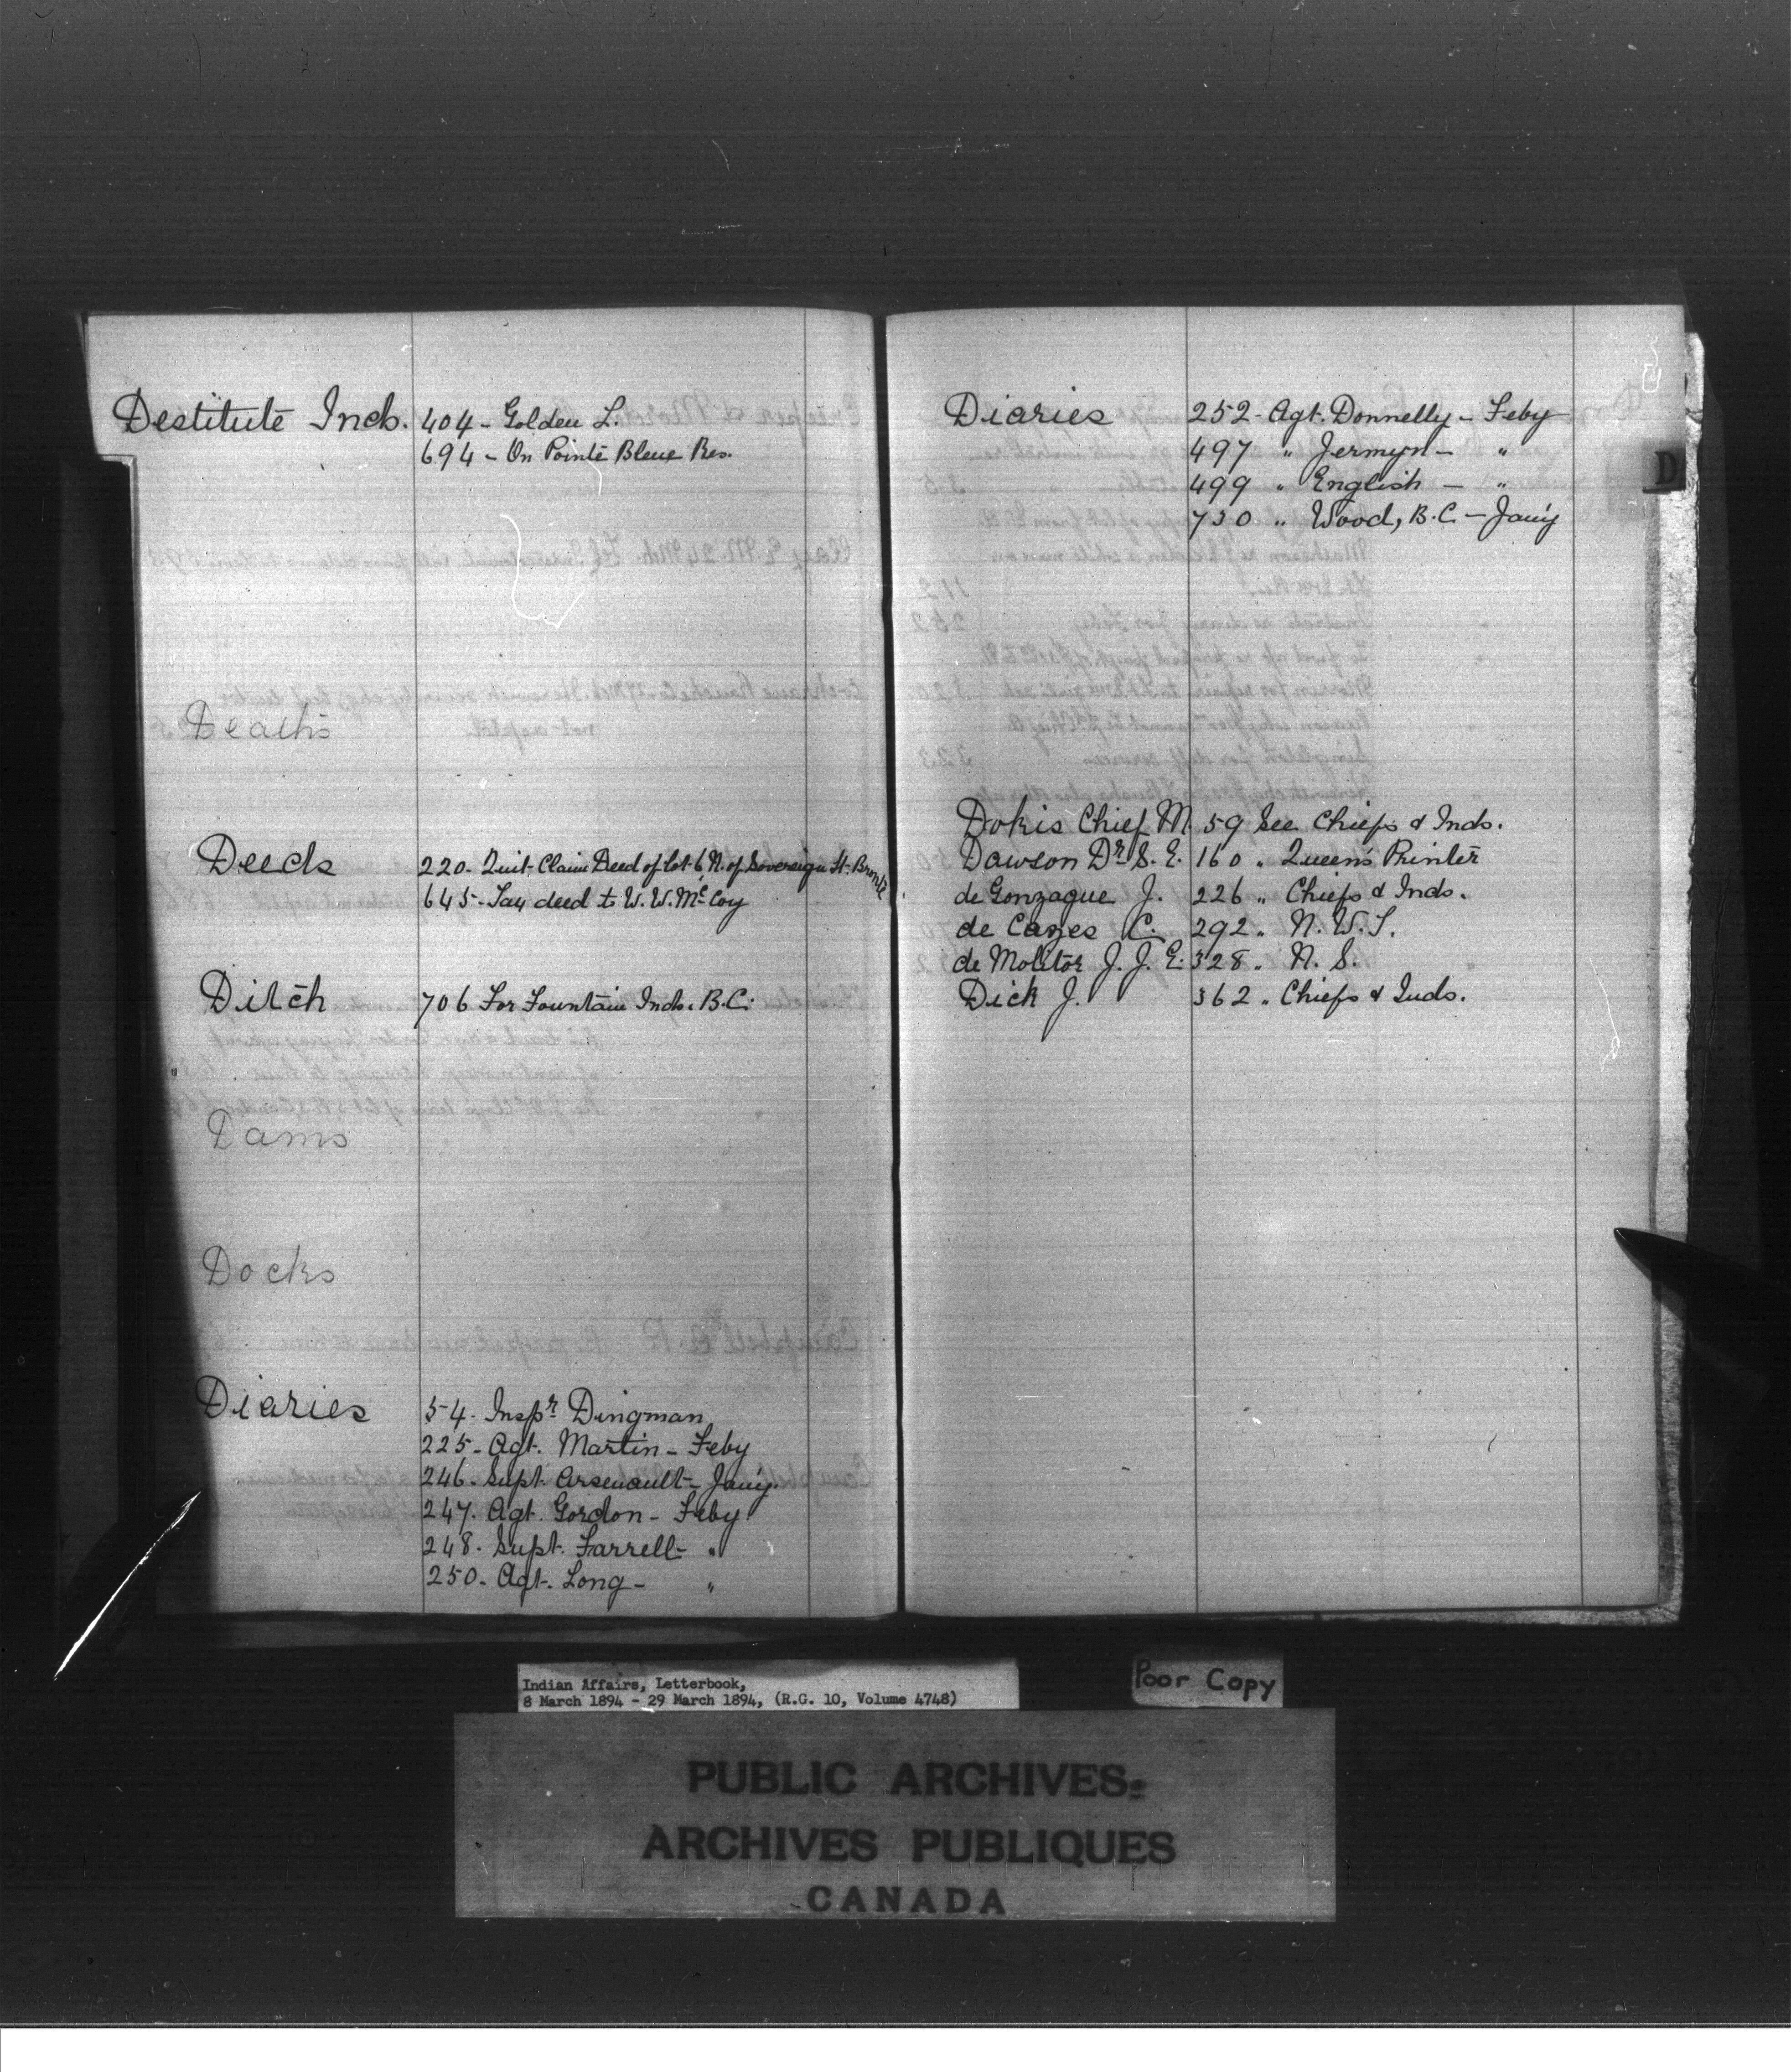 Destitute Inds. 404 - Golden L.
694 - On Pointe Bleue Res.
Deaths
Deeds 220 - Quit Claim Deed of Lot 6 N. of Sovereign St. Bronte
645 - Tax deed to W. W. McCoy
Ditch 706 For Fountain Inds. B.C.
Dams
Docks
Diaries 54 - Inspr Dingman
225 - Agt. Martin - Feby
246 - Supt. Arsenault - Jan'y.
247. Agt. Gordon - Feby
248. Supt. Farrell - "
250 - Agt. Long - "
Diaries 252 - Agt. Donnelly - Feby
497 " Jermyn - "
499 " English - "
730 " Wood, B.C. - Jan'y
D
Dokis Chief M. 59 See Chiefs & Inds.
Dawson Dr. S. E. 160 " Queen's Printer
de Gonzague J. 226 " Chiefs & Inds.
de Cazes C. 292 " N. W. T.
de Molitor J. J. E. 328 " N. S.
Dick J. 362 " Chiefs & Inds.
Indian Affairs, Letterbook,
8 March 1894 - 29 March 1894, (R.G. 10, Volume 4748)
Poor Copy
PUBLIC ARCHIVES
ARCHIVES PUBLIQUES
CANADA